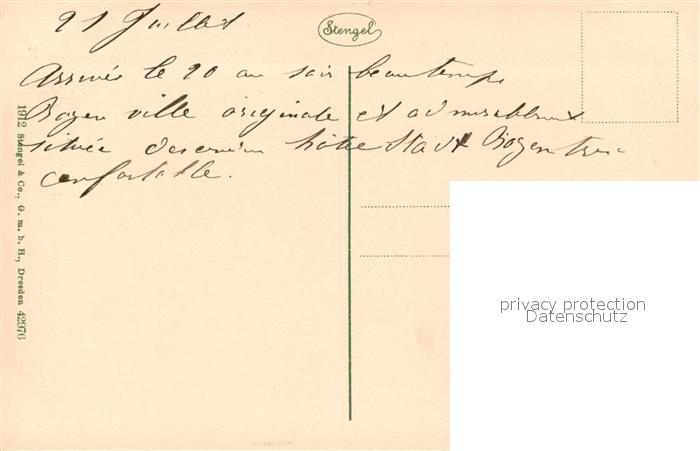 21 Juillet
Stengel
Arrivés le 20 au soir beau temps
Bozen ville originale et admirablement
située descendu hôtel Stadt Bozen très
confortable.
1912 Stengel & Co., G. m. b. H., Dresden 42976
privacy protection
Datenschutz